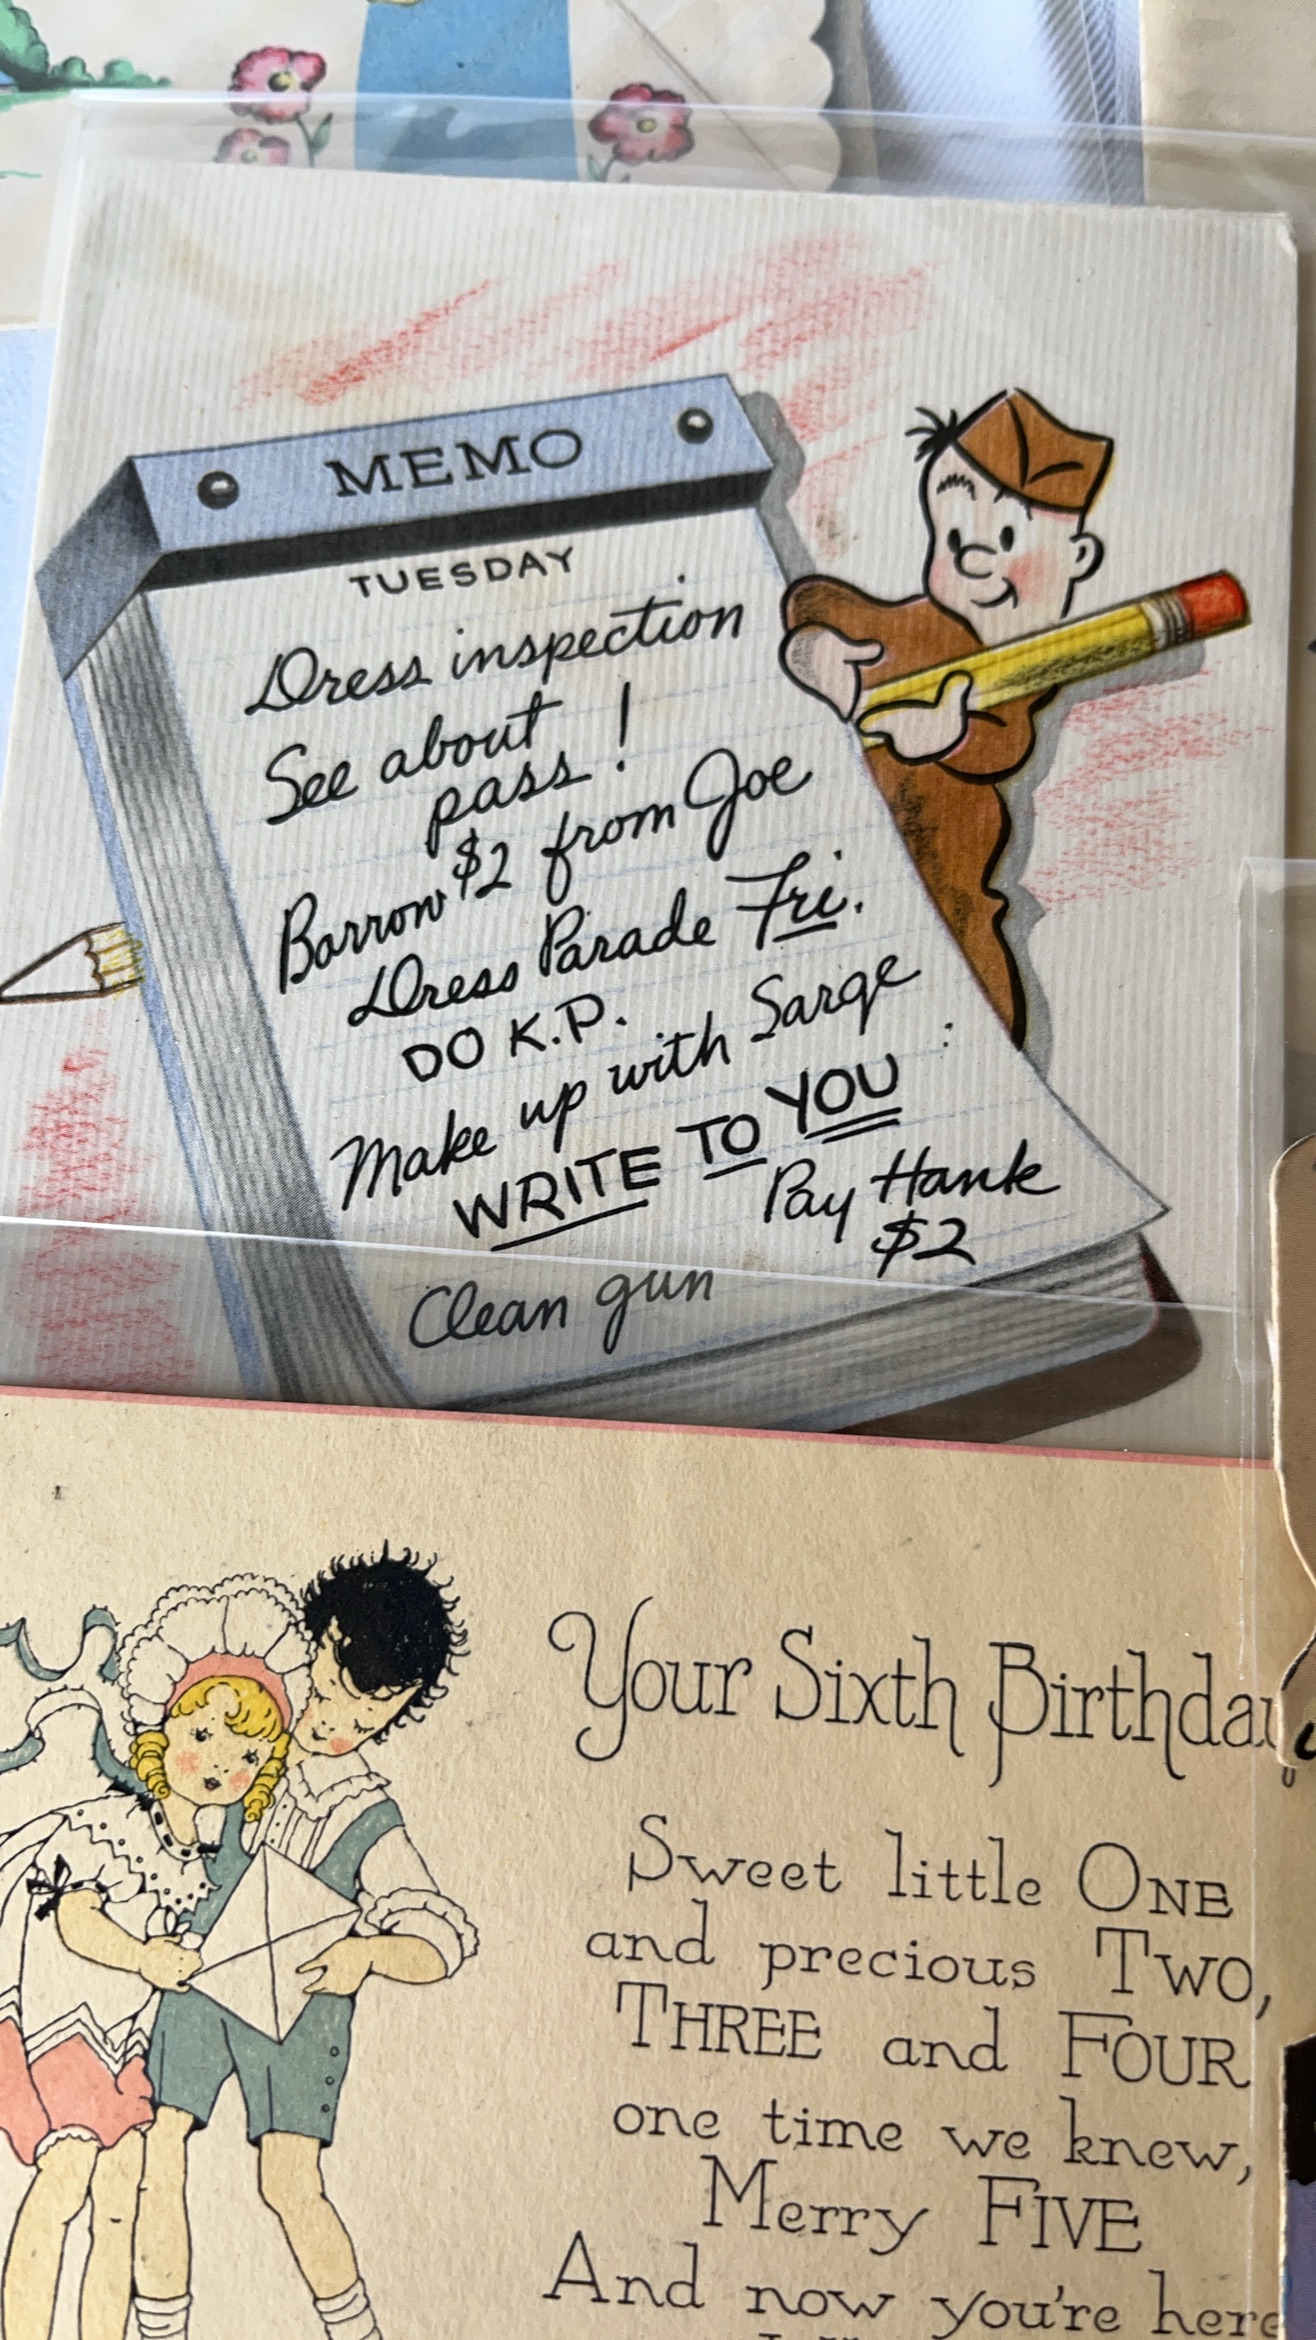 MEMO
TUESDAY
Dress inspection
See about
pass!
Borrow $2 from Joe
Dress Parade Fri.
DO K.P.
Make up with Sarge
WRITE TO YOU:
Pay Hank
$2
Clean gun
Your Sixth Birthday
Sweet little ONE
and precious TWO,
THREE and FOUR
one time we knew,
Merry FIVE
And now you're here